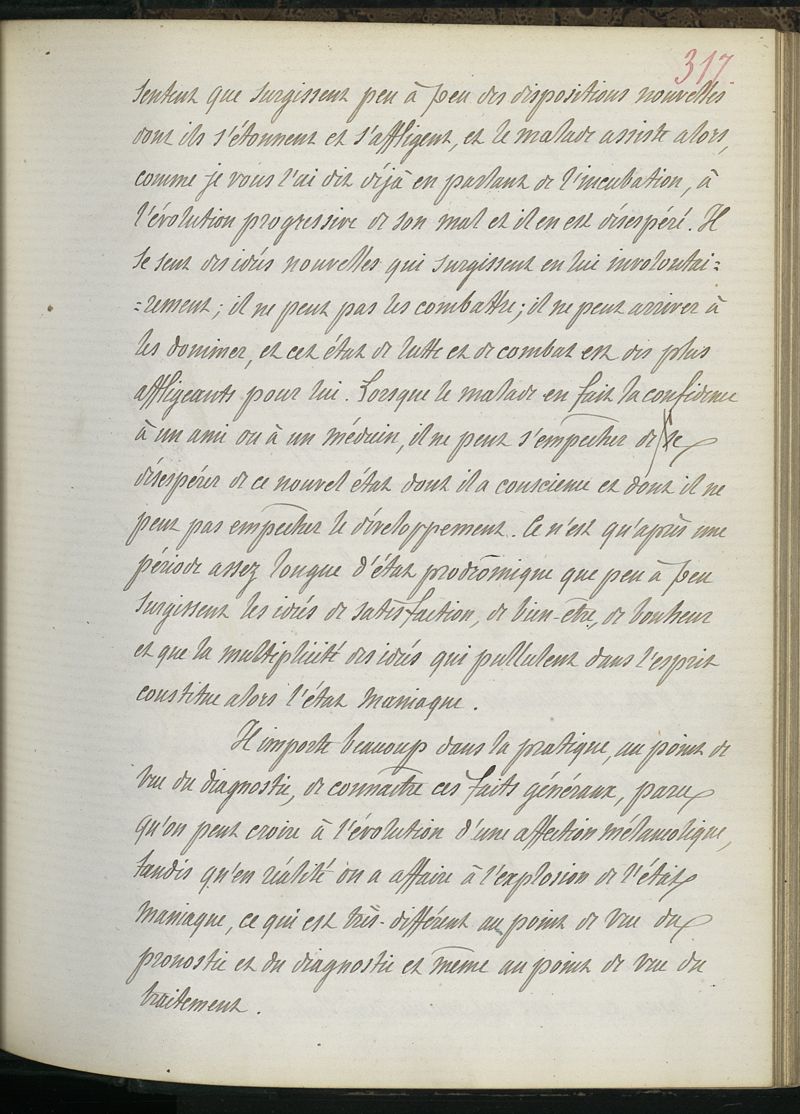 317.
sentent que surgissent peu à peu des dispositions nouvelles
dont ils s'étonnent et s'affligent, et le malade assiste alors,
comme je vous l'ai dit déjà en parlant de l'incubation, à
l'évolution progressive de son mal et il en est désespéré. Il
se sent des idées nouvelles qui surgissent en lui involontai=
=rement; il ne peut pas les combattre; il ne peut arriver à
les dominer, et cet état de lutte et de combat est des plus
affligeants pour lui. Lorsque le malade en fait la confidence
à un ami ou à un médecin, il ne peut s'empêcher de se
désespérer de ce nouvel état dont il a conscience et dont il ne
peut pas empêcher le développement. Ce n'est qu'après une
période assez longue d'état prodrômique que peu à peu
surgissent les idées de satisfaction, de bien-être, de bonheur
et que la multiplicité des idées qui pullulent dans l'esprit
constitue alors l'état maniaque.
Il importe beaucoup dans la pratique, au point de
vue du diagnostic, de connaître ces faits généraux, parce
qu'on peut croire à l'évolution d'une affection mélancolique,
tandis qu'en réalité on a affaire à l'explosion de l'état
maniaque, ce qui est très-différent au point de vue du
pronostic et du diagnostic et même au point de vue du
traitement.